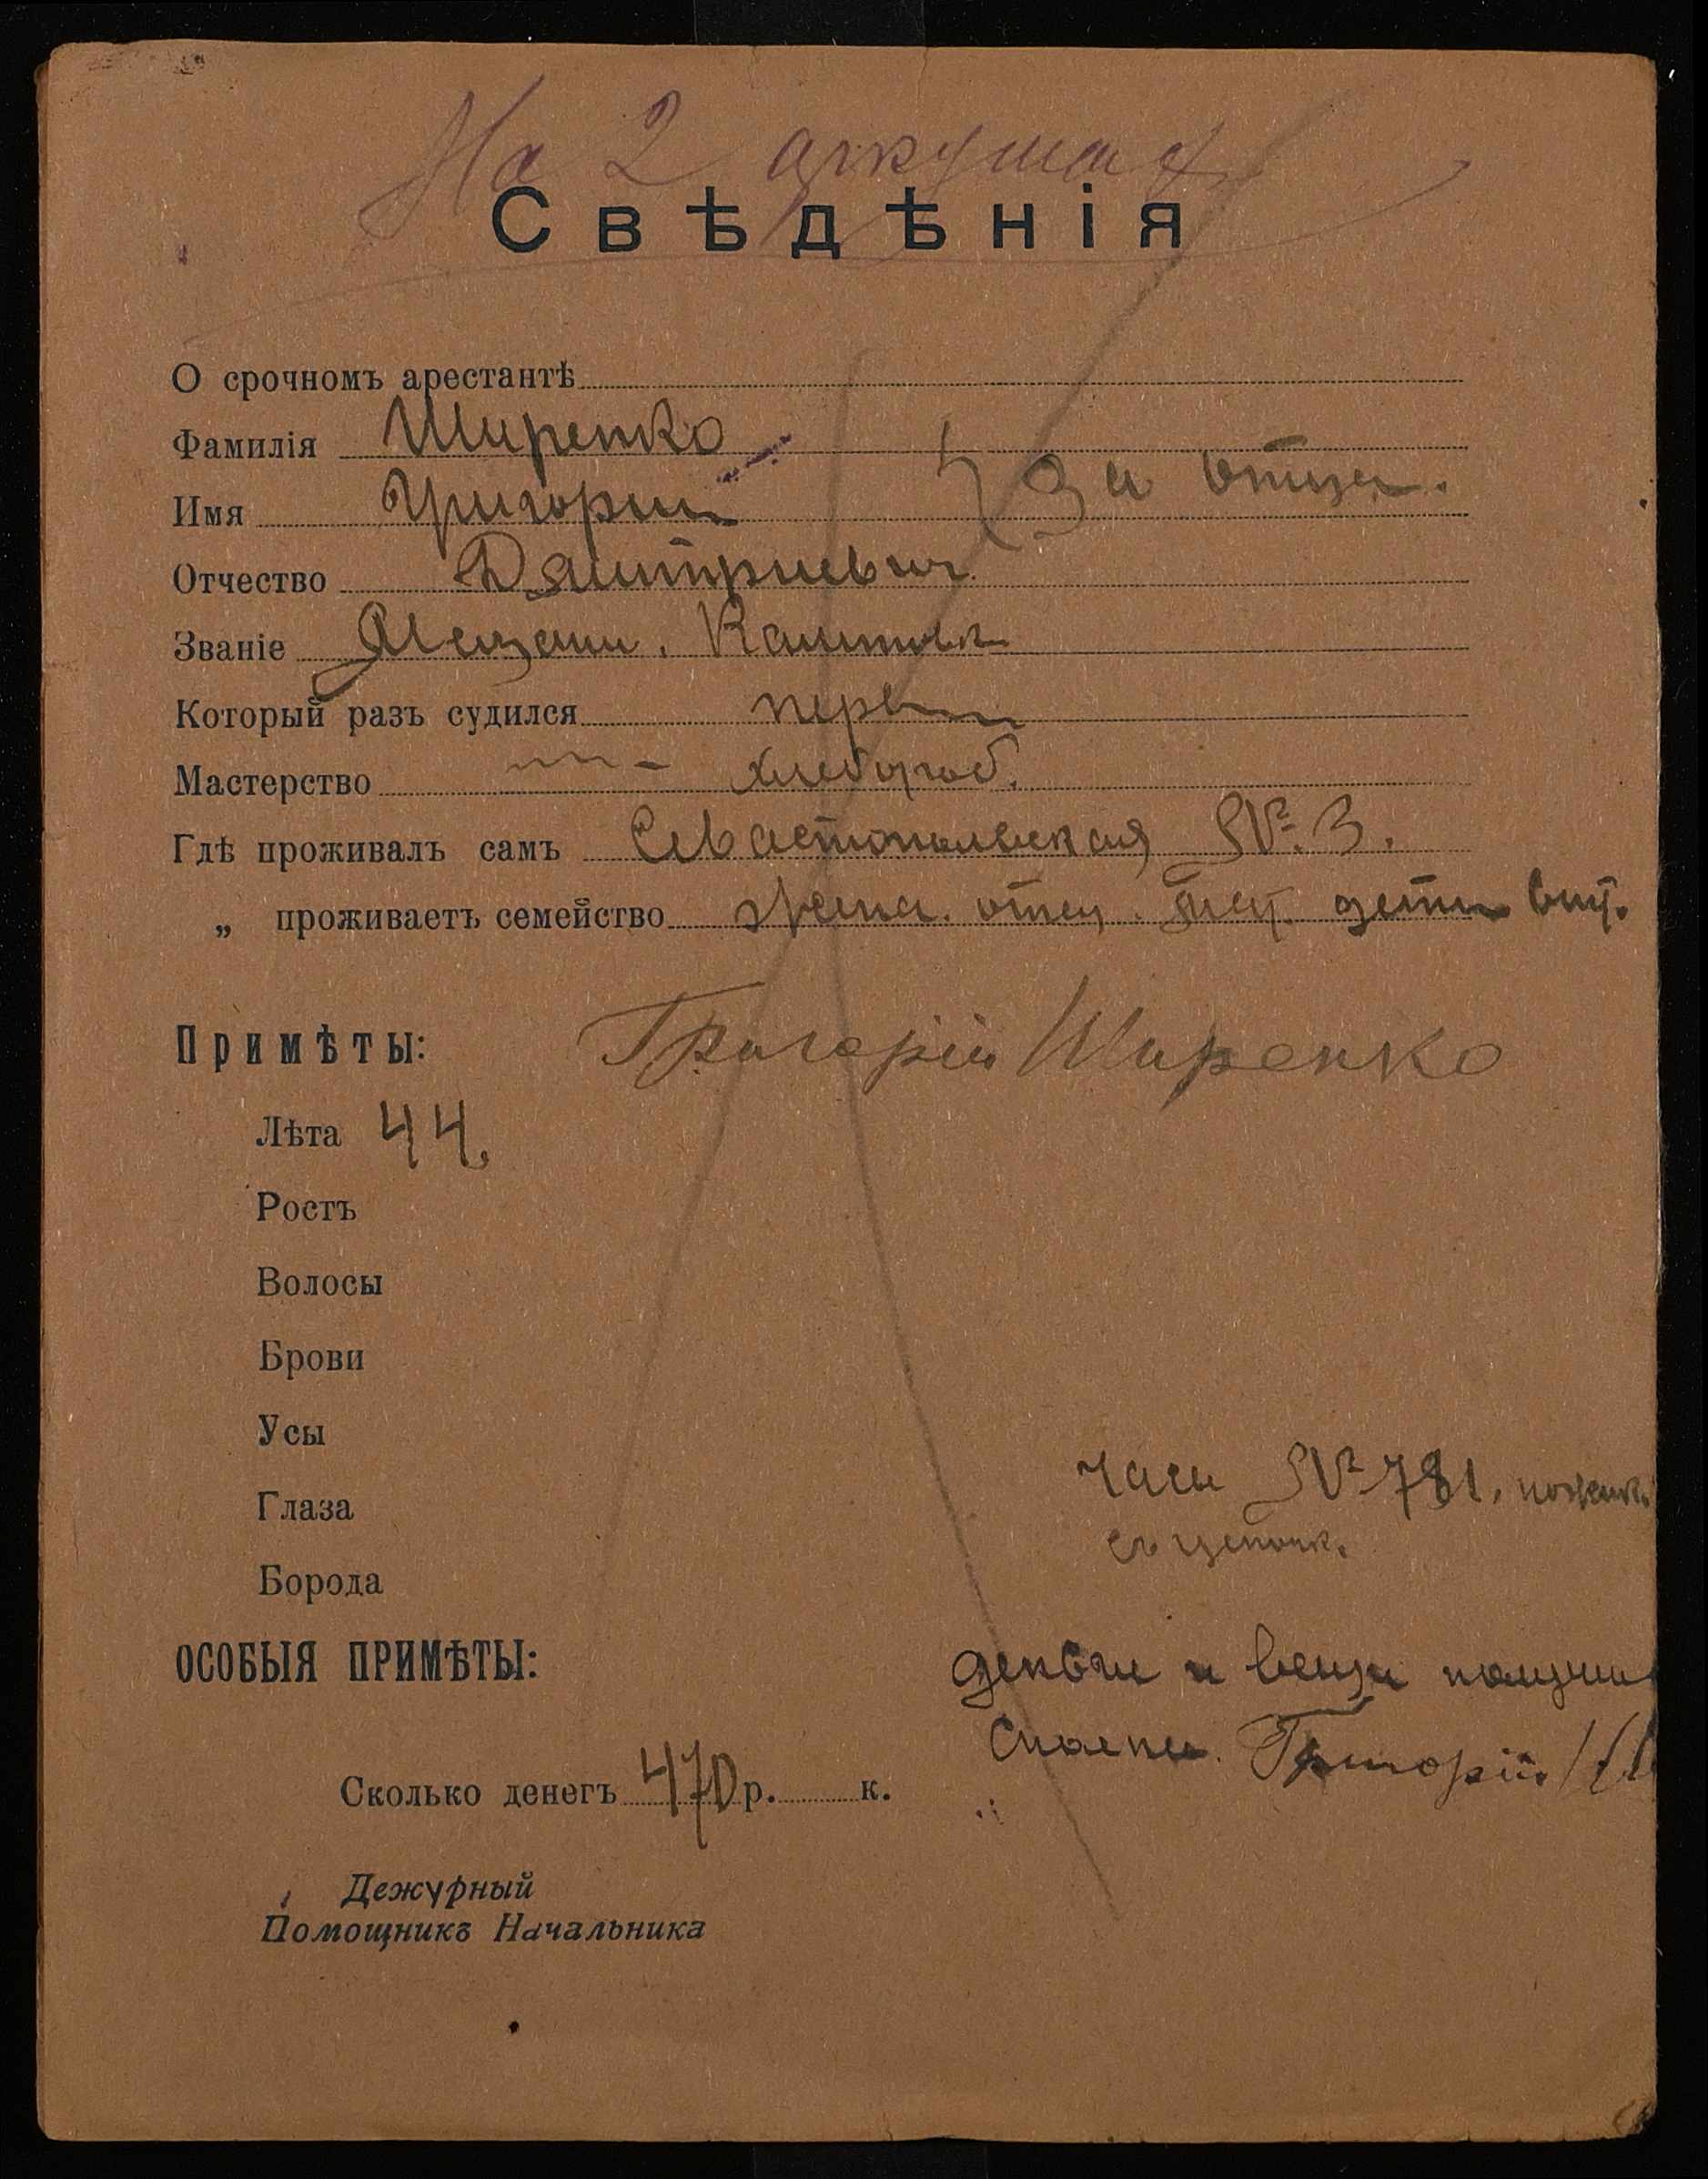 На 2 аркушах
Свѣдѣнія
О срочномъ арестантѣ
Фамилія Ширенко
Имя Григорий За отца.
Отчество Дмитриевич
Званіе Мещани.
Который разъ судился первый
Мастерство хлебороб.
Гдѣ проживалъ самъ Севастопольская № 3.
„ проживаетъ семейство жена. отец. дети
Примѣты: Григорій Ширенко
Лѣта 44.
Ростъ
Волосы
Брови
Усы
Глаза
Борода
часы № 781.
съ цепочк.
ОСОБЫЯ ПРИМѢТЫ:
деньги и вещи получил
Сполна. Григорій
Сколько денегъ 470 р. к.
Дежурный
Помощникъ Начальника